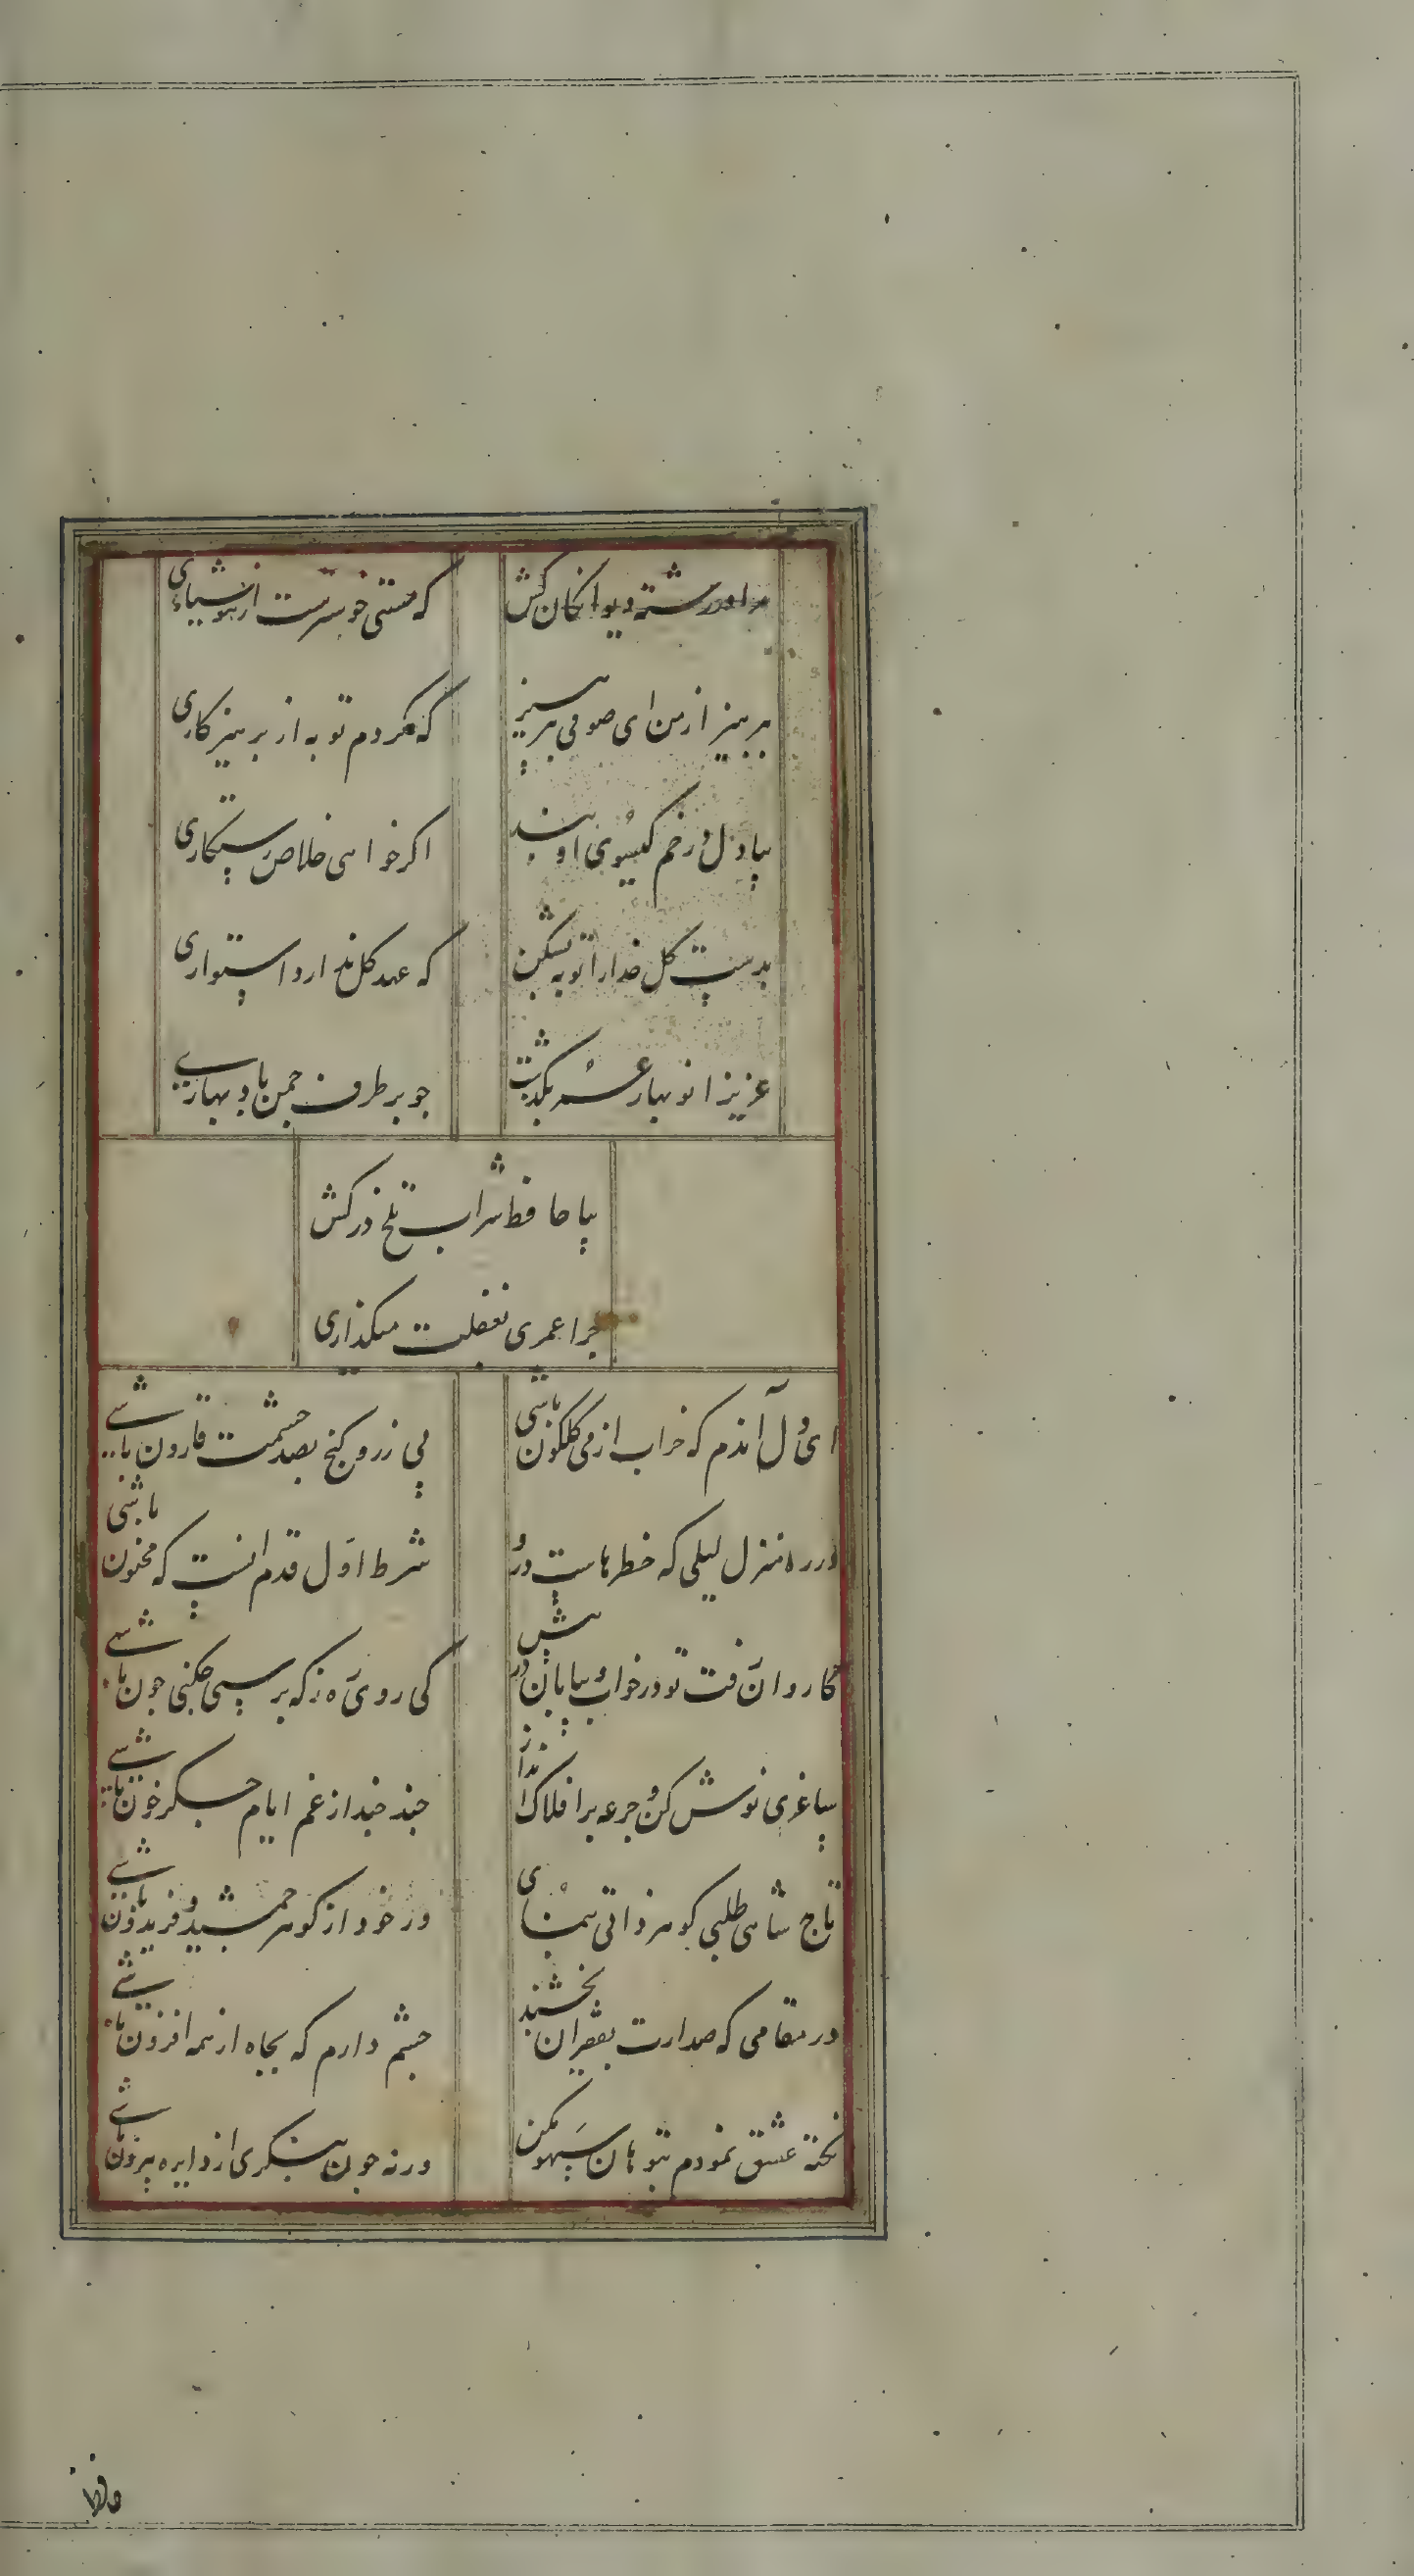 مرا در رشته دیوانکان کش
که مستی خوشرست از هوشیاری
بپرهیز از من ای صوفی بپرهیز
که کردم توبه از پرهیزکاری
بیا دل در خم کیسوی او بند
اکر خواهی خلاص و رستکاری
بدست کل خدا را توبه بشکن
که عهد کل ندارد استواری
عزیزا نوبهار عمر بکذشت
جو بر طرف جمن باد بهاری
بیا حافظ شراب تلخ درکش
جرا عمری بغفلت میکذاری
ای دل آندم که خراب از می کلکون باشی
بی زر و کنج بصد حشمت قارون باشی
در ره منزل لیلی که خطرهاست درو
شرط اول قدم انست که مجنون باشی
کاروان رفت و تو در خواب و بیابان در پیش
کی روی ره ز که پرسی چکنی جون باشی
ساغری نوش کن و جرعه بر افلاک انداز
جند جند از غم ایام جکر خون باشی
تاج شاهی طلبی کوهر ذاتی بنمای
ور خود از کوهر جمشید و فریدون باشی
در مقامی که صدارت بفقیران بخشند
جشم دارم که بجاه از همه افزون باشی
نکته عشق نمودم بتو هان سهو مکن
ورنه جون بنکری از دایره بیرون باشی
حافظ